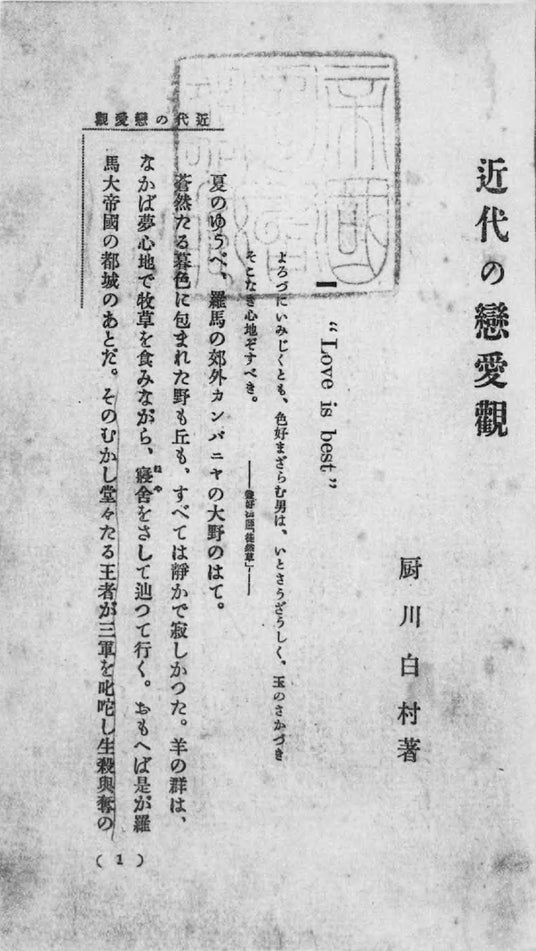 近代の戀愛觀
厨川白村著
一
“Love is best”
よろづにいみじくとも、色好まざらむ男は、いとさうざうしく、玉のさかづき
そこなき心地ぞすべき。
――兼好法師『徒然草』――
夏のゆうべ、羅馬の郊外カンパニャの大野のはて。
蒼然たる暮色に包まれた野も丘も、すべては靜かで寂しかつた。羊の群は、
なかば夢心地で牧草を食みながら、寢舍をさして辿つて行く。おもへば是が羅
ねや
馬大帝國の都城のあとだ。そのむかし堂々たる王者が三軍を叱咤し生殺與奪の
近代の戀愛觀
( 1 )